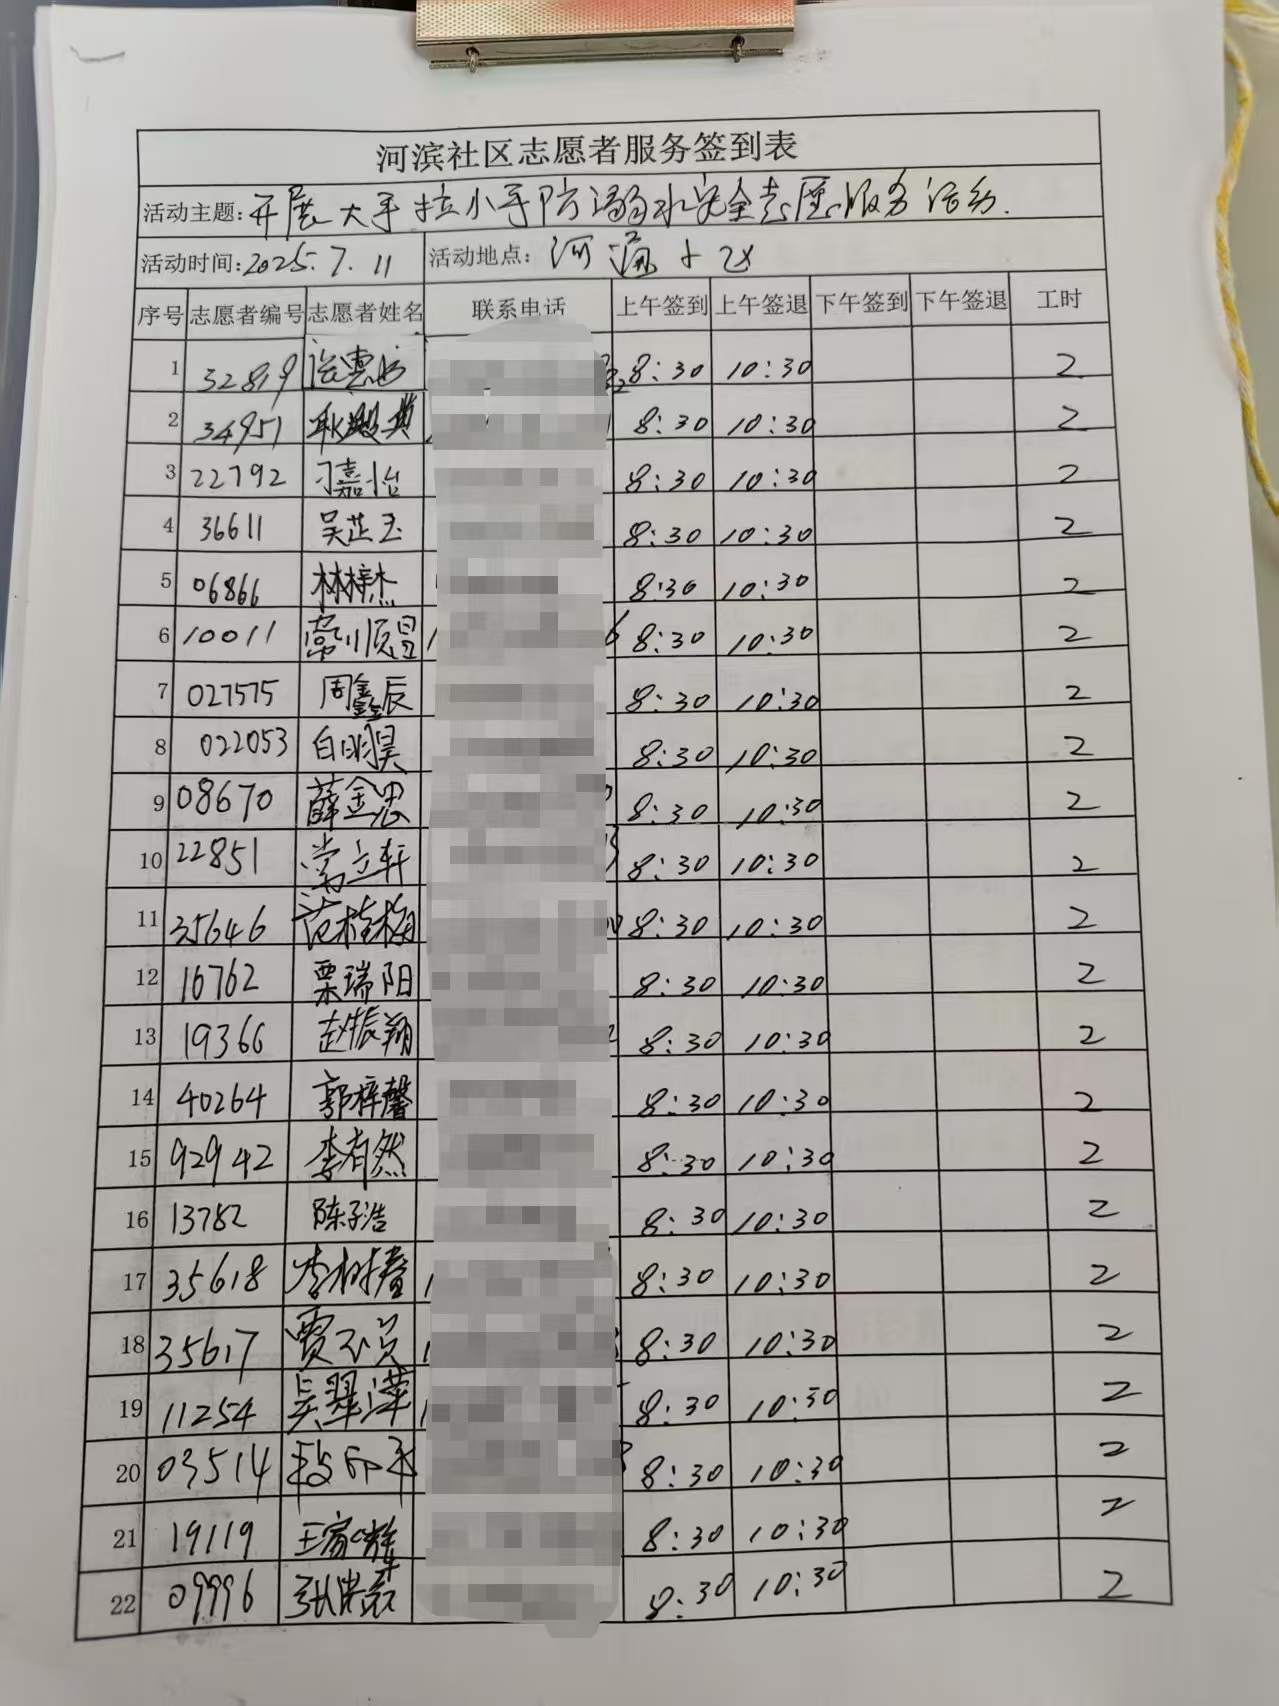 河滨社区志愿者服务签到表
活动主题: 开展大手拉小手防溺水安全志愿服务活动.
活动时间: 2025.7.11 活动地点: 河滨
序号 志愿者编号 志愿者姓名 联系电话 上午签到 上午签退 下午签到 下午签退 工时
1 32819 8:30 10:30 2
2 34951 8:30 10:30 2
3 22792 刁嘉怡 8:30 10:30 2
4 36611 吴芷玉 8:30 10:30 2
5 06866 林梓杰 8:30 10:30 2
6 10011 8:30 10:30 2
7 027575 周鑫辰 8:30 10:30 2
8 022053 白明昊 8:30 10:30 2
9 08670 薛金忠 8:30 10:30 2
10 22851 常立轩 8:30 10:30 2
11 35646 范桂梅 8:30 10:30 2
12 16762 栗瑞阳 8:30 10:30 2
13 19366 赵振翔 8:30 10:30 2
14 40264 郭梓馨 8:30 10:30 2
15 92942 李有然 8:30 10:30 2
16 13782 陈子浩 8:30 10:30 2
17 35618 8:30 10:30 2
18 35617 8:30 10:30 2
19 11254 8:30 10:30 2
20 03514 8:30 10:30 2
21 19119 8:30 10:30 2
22 09996 8:30 10:30 2